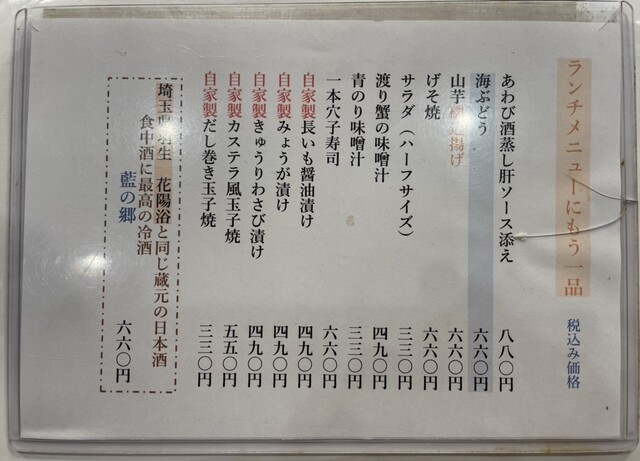 ランチメニューにもう一品 税込み価格
あわび酒蒸し肝ソース添え 八八〇円
海ぶどう 六六〇円
山芋 揚げ 六六〇円
げそ焼 六六〇円
サラダ（ハーフサイズ） 三三〇円
渡り蟹の味噌汁 四九〇円
青のり味噌汁 三三〇円
一本穴子寿司 六六〇円
自家製長いも醤油漬け 四九〇円
自家製みょうが漬け 四九〇円
自家製きゅうりわさび漬け 四九〇円
自家製カステラ風玉子焼 五五〇円
自家製だし巻き玉子焼 三三〇円
埼玉県羽生 花陽浴と同じ蔵元の日本酒
食中酒に最高の冷酒
藍の郷 六六〇円